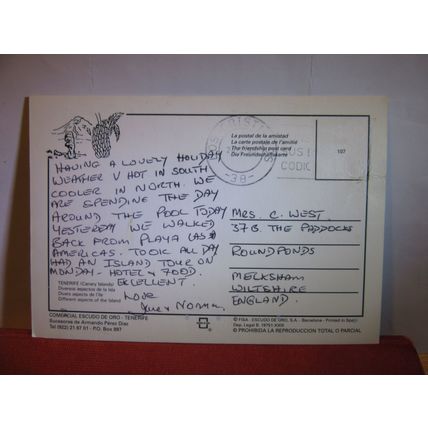 HAVING A LOVELY HOLIDAY
WEATHER V HOT IN SOUTH
COOLER IN NORTH. WE
ARE SPENDING THE DAY
AROUND THE POOL TODAY
YESTERDAY WE WALKED
BACK FROM PLAYA LAS
AMERICAS. TOOK ALL DAY
HAD AN ISLAND TOUR ON
MONDAY - HOTEL & FOOD.
EXCELLENT.
LOVE
& NORMAN
TENERIFE (Canary Islands)
Diversos aspectos de la Isla
Divers aspects de l'île
Different aspects of the Island
COMERCIAL ESCUDO DE ORO - TENERIFE
Sucesores de Armando Pérez Díaz
Tel (922) 21 87 51 - P.O. Box 897
La postal de la amistad
La carte postale de l'amitié
The friendship post card
Die Freundschaftskarte
-38-
CODIG
107
MRS. C. WEST.
37B. THE PADDOCKS
ROUNDPONDS
MELKSHAM
WILTSHIRE
ENGLAND.
© FISA - ESCUDO DE ORO, S.A. - Barcelona - Printed in Spain
Dep. Legal B.
© PROHIBIDA LA REPRODUCCION TOTAL O PARCIAL